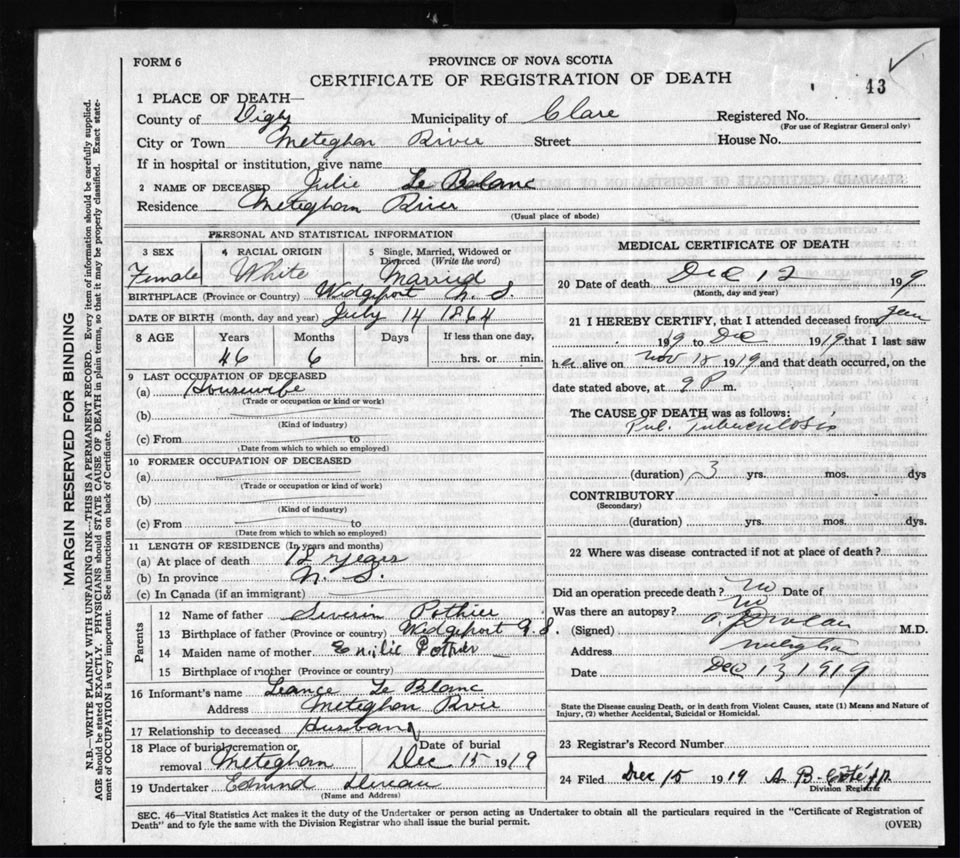 FORM 6
PROVINCE OF NOVA SCOTIA
CERTIFICATE OF REGISTRATION OF DEATH
43
1 PLACE OF DEATH—
County of Digby Municipality of Clare Registered No.
(For use of Registrar General only)
City or Town Meteghan River Street House No.
If in hospital or institution, give name
2 NAME OF DECEASED Julie Le Blanc
Residence Meteghan River
(Usual place of abode)
PERSONAL AND STATISTICAL INFORMATION
3 SEX Female
4 RACIAL ORIGIN White
5 Single, Married, Widowed or Divorced (Write the word) Married
BIRTHPLACE (Province or Country) Wedgeport N. S.
DATE OF BIRTH (month, day and year) July 14 1864
8 AGE Years Months Days If less than one day,
46 6 hrs. or min.
9 LAST OCCUPATION OF DECEASED
(a) Housewife
(Trade or occupation or kind or work)
(b)
(Kind of industry)
(c) From to
(Date from which to which so employed)
10 FORMER OCCUPATION OF DECEASED
(a)
(Trade or occupation or kind of work)
(b)
(Kind of industry)
(c) From to
(Date from which to which so employed)
11 LENGTH OF RESIDENCE (In years and months)
(a) At place of death 12 years
(b) In province N. S.
(c) In Canada (if an immigrant)
Parents
12 Name of father Severin Pothier
13 Birthplace of father (Province or country) Wedgeport N.S.
14 Maiden name of mother Emilie Pothier
15 Birthplace of mother (Province or country)
16 Informant's name Leance Le Blanc
Address Meteghan River
17 Relationship to deceased Husband
18 Place of burial cremation or removal Meteghan
Date of burial Dec 15 1919
19 Undertaker Edmund Deveau
(Name and Address)
MEDICAL CERTIFICATE OF DEATH
20 Date of death Dec 12 1919
(Month, day and year)
21 I HEREBY CERTIFY, that I attended deceased from Jan
1919 to Dec 1919 that I last saw
her alive on Nov 18 1919 and that death occurred, on the
date stated above, at 9 P m.
The CAUSE OF DEATH was as follows:
Pul. Tuberculosis
(duration) 3 yrs. mos. dys
CONTRIBUTORY
(Secondary)
(duration) yrs. mos. dys.
22 Where was disease contracted if not at place of death?
Did an operation precede death? no Date of
Was there an autopsy? no
(Signed) M.D.
Address Meteghan
Date Dec 13 1919
State the Disease causing Death, or in death from Violent Causes, state (1) Means and Nature of
Injury, (2) whether Accidental, Suicidal or Homicidal.
23 Registrar's Record Number
24 Filed Dec 15 1919 A B
Division Registrar
SEC. 46—Vital Statistics Act makes it the duty of the Undertaker or person acting as Undertaker to obtain all the particulars required in the "Certificate of Registration of
Death" and to fyle the same with the Division Registrar who shall issue the burial permit.
(OVER)
MARGIN RESERVED FOR BINDING
N.B.—WRITE PLAINLY WITH UNFADING INK—THIS IS A PERMANENT RECORD. Every item of information should be carefully supplied.
AGE should be stated EXACTLY. PHYSICIANS should STATE CAUSE OF DEATH in plain terms, so that it may be properly classified. Exact state-
ment of OCCUPATION is very important. See instructions on back of Certificate.